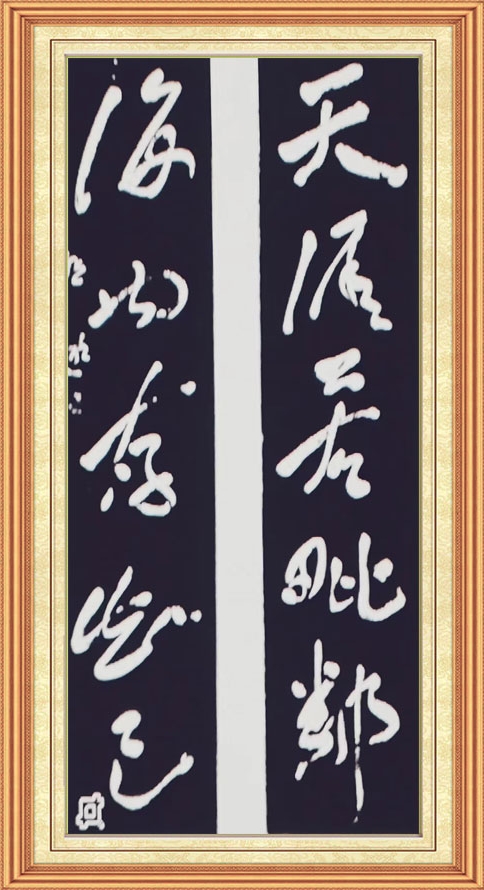 天涯若毗鄰
海内存知己